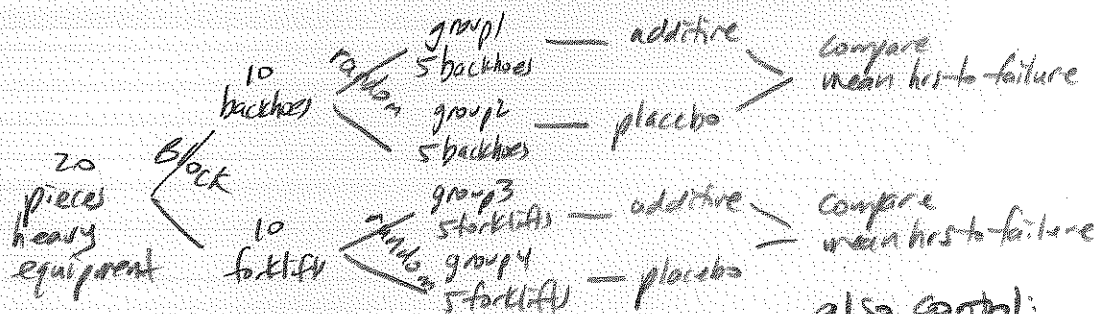 20
pieces
heavy
equipment
Block
10
backhoes
random
group1
5 backhoes
additive
group2
5 backhoes
placebo
compare
mean hrs-to-failure
10
forklift
random
group3
5 forklifts
additive
group4
5 forklifts
placebo
compare
mean hrs-to-failure
also control: